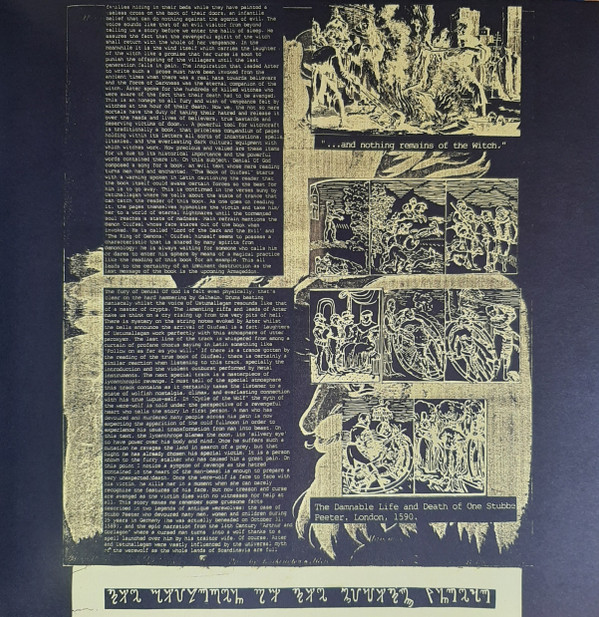 families hiding in their beds while they have painted a
useless cross on the back of their doors, an infantile
belief that can do nothing against the agents of evil. The
voice sounds like that of an evil visitor from beyond
telling us a story before we enter the halls of sleep. He
assures the fact that the revengeful spirit of the witch
shall return with the whole of her vengeance. In the
meanwhile it is the wind itself which carries the laughter
of the witch like a promise that her curse is soon to
punish the offspring of the villagers until the last
generation falls in pain. The inspiration that leaded Azter
to write such a prose must have been invoked from the
ancient times when there was a real hate towards believers
and the Force of Darkness was the eternal companion of the
witch. Azter spoke for the hundreds of killed witches who
were aware of the fact that their death had to be avenged.
This is an homage to all fury and wish of vengeance felt by
witches at the hour of their death. Now we, the not so mere
mortals have the duty of taking their hatred and release it
over the heads and lives of believers, thus bastards and
deserving victims of doom... A powerful tool for witchcraft
is traditionally a book, that priceless compendium of pages
holding within its letters all sorts of incantations, spells,
litanies, and the everlasting dark cultural equipment with
which witches work. How precious and valued are these items
for us due to its historical importance and the powerful
words contained there in. On this subject, Denial Of God
composed a song for a book, an evil text whose mere reading
turns men mad and enchanted. "The Book of Oiufael" starts
with a warning spoken in Latin cautioning the reader that
the book itself could awake certain forces so the best for
him is to go away. This is confirmed in the verses sung by
Ustumallagam where he talks about the state of trance that
can catch the reader of this book. As one goes on reading
it, the pages themselves hypnotise the victim and take him/
her to a world of eternal nightmares until the tormented
soul reaches a state of madness. Main refrain mentions the
demon Oiufael whose face stares out of the book when
invoked. He is called 'Lord of the Dark and the Evil' and
'The King of Demons'. Oiufael himself seems to possess a
characteristic that is shared by many spirits from
demonology: he is always waiting for someone who calls him
or dares to enter his sphere by means of a magical practice
like the reading of this book for an example. This all
leads to the certainty of an imminent destruction as the
last message of the book is the upcoming Armageddon.
The fury of Denial Of God is felt even physically, that's
clear on the hard hammering by Galheim. Drums beating
maniacally whilst the voice of Ustumallagam resounds like that
of a master of crypts. The lamenting riffs and leads of Azter
make us think on a cry rising up from the very pits of hell.
There is mystery in the string noises evoked by Azter whilst
the bells announce the arrival of Oiufael is a fact. Laughters
of Ustumallagam work perfectly with this atmosphere of utter
paroxysm. The last line of the track is whispered from among a
curtain of profane chorus saying in Latin something like
'Follow on as far as you will.' If there is a trance gotten by
the reading of the true book of Oiufael, there is certainly a
similar reaction when listening to this track, specially the
introduction and the violent outbursts performed by metal
instruments. The next special track is a masterpiece of
lycanthropic revenge. I must tell of the special atmosphere
this track contains as it certainly takes the listener to a
state of wolfish nostalgia, climax, and everlasting connection
with his true lupus-self. In "Cycle of the Wolf" the myth of
the were-wolf is told under the perspective of a revengeful
heart who calls the story in first person. A man who has
devoured and murdered many people across his path is now
expecting the apparition of the cold fullmoon in order to
experience his usual transformation from man into beast. On
this text, the lycanthrope blames the moon, its 'silvery eye'
to have power over his body and mind. Once he suffers such a
mutation he ravages the land in search of a prey, but that
night he has already chosen his special victim. It is a person
known to the furry stalker who has caused him a great pain. On
this point I notice a symptom of revenge as the hatred
contained in the heart of the man-beast is enough to prepare a
very unexpected death. Once the were-wolf is face to face with
his victim, he kills her in a moment when she can merely
recognise the features of his face, but now treason and curse
are avenged as one victim dies with no witnesses nor help at
all. This story makes me remember some gruesome facts
mentioned in two legends of antique werewolves: the case of
Stubb Peeter who devoured many men, women and children during
25 years in Germany (he was actually beheaded on October 31,
1589), and the epic narration from the 14th Century "Arthur and
Gorlagon" where a cursed man turns into a wolf thanks to a
spell launched over him by his traitor wife. Of course, Azter
and Ustumallagam were vastly influenced by the universal myth
of the werewolf as the whole lands of Scandinavia are full
"...and nothing remains of the Witch."
The Damnable Life and Death of One Stubbe
Peeter. London, 1590.